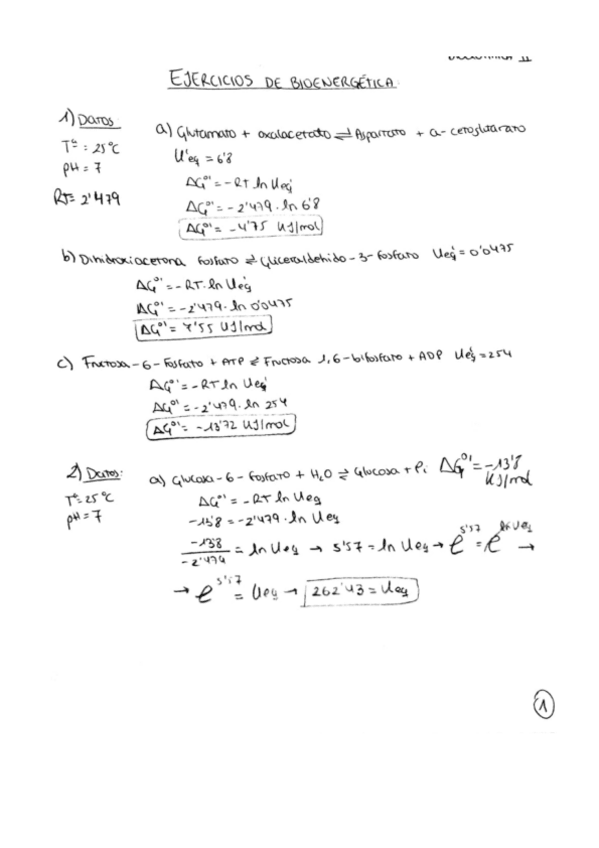 EJERCICIOS DE BIOENERGÉTICA
1) Datos:
Tª = 25ºC
pH = 7
RT= 2'479
a) Glutamato + oxalacetato ⇌ Aspartato + α-cetoglutarato
K'eq = 6'8
ΔG°' = -RT ln Keq'
ΔG°' = -2'479 · ln 6'8
ΔG°' = -4'75 KJ/mol
b) Dihidroxiacetona fosfato ⇌ Gliceraldehido-3-fosfato Keq' = 0'0475
ΔG°' = -RT · ln Keq'
ΔG°' = -2'479 · ln 0'0475
ΔG°' = 7'55 KJ/mol
c) Fructosa-6-fosfato + ATP ⇌ Fructosa 1,6-bifosfato + ADP Keq' = 254
ΔG°' = -RT ln Keq'
ΔG°' = -2'479 · ln 254
ΔG°' = -13'72 KJ/mol
2) Datos:
Tª = 25ºC
pH = 7
a) Glucosa-6-fosfato + H₂O ⇌ Glucosa + Pi ΔG°' = -13'8 KJ/mol
ΔG°' = -RT ln Keq
-13'8 = -2'479 · ln Keq
-13'8 / -2'479 = ln Keq → 5'57 = ln Keq → e^5'57 = e^ln Keq →
→ e^5'57 = Keq → 262'43 = Keq
1